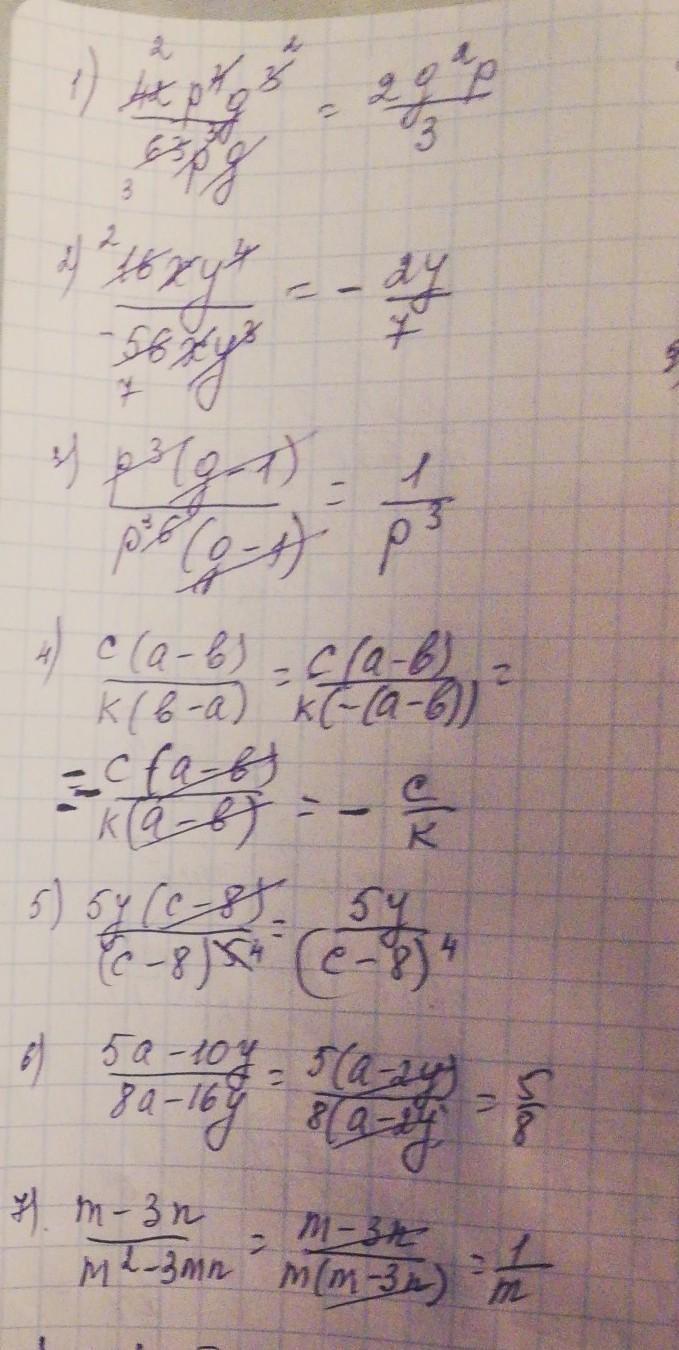 1) 42p⁴g³ / 63p³g = 2g²p / 3
2) 16xy⁴ / -56xy³ = - 2y / 7
3) p³(g-1) / p⁶(g-1) = 1 / p³
4) c(a-b) / k(b-a) = c(a-b) / k(-(a-b)) =
= - c(a-b) / k(a-b) = - c / k
5) 5y(c-8) / (c-8)⁵ = 5y / (c-8)⁴
6) 5a-10y / 8a-16y = 5(a-2y) / 8(a-2y) = 5 / 8
7) m-3n / m²-3mn = m-3n / m(m-3n) = 1 / m